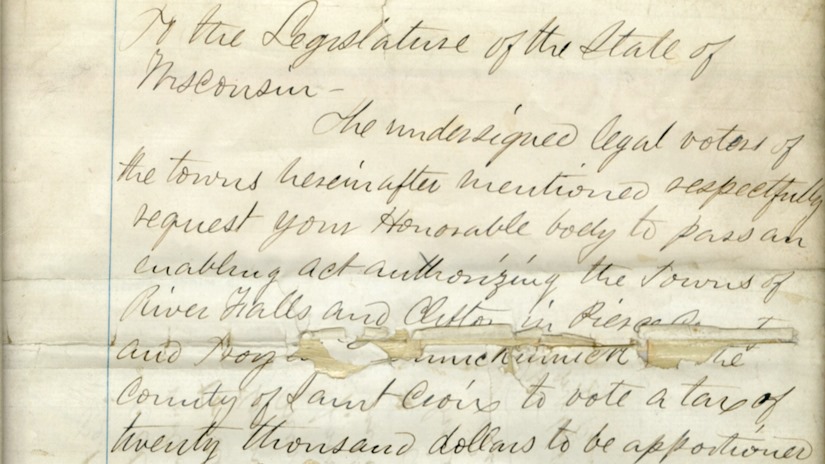 To the Legislature of the State of
Wisconsin -
The undersigned legal voters of
the towns hereinafter mentioned respectfully
request your Honorable body to pass an
enabling act authorizing the Towns of
River Falls and Clifton in Pierce
and Troy the
County of Saint Croix to vote a tax of
twenty thousand dollars to be apportioned